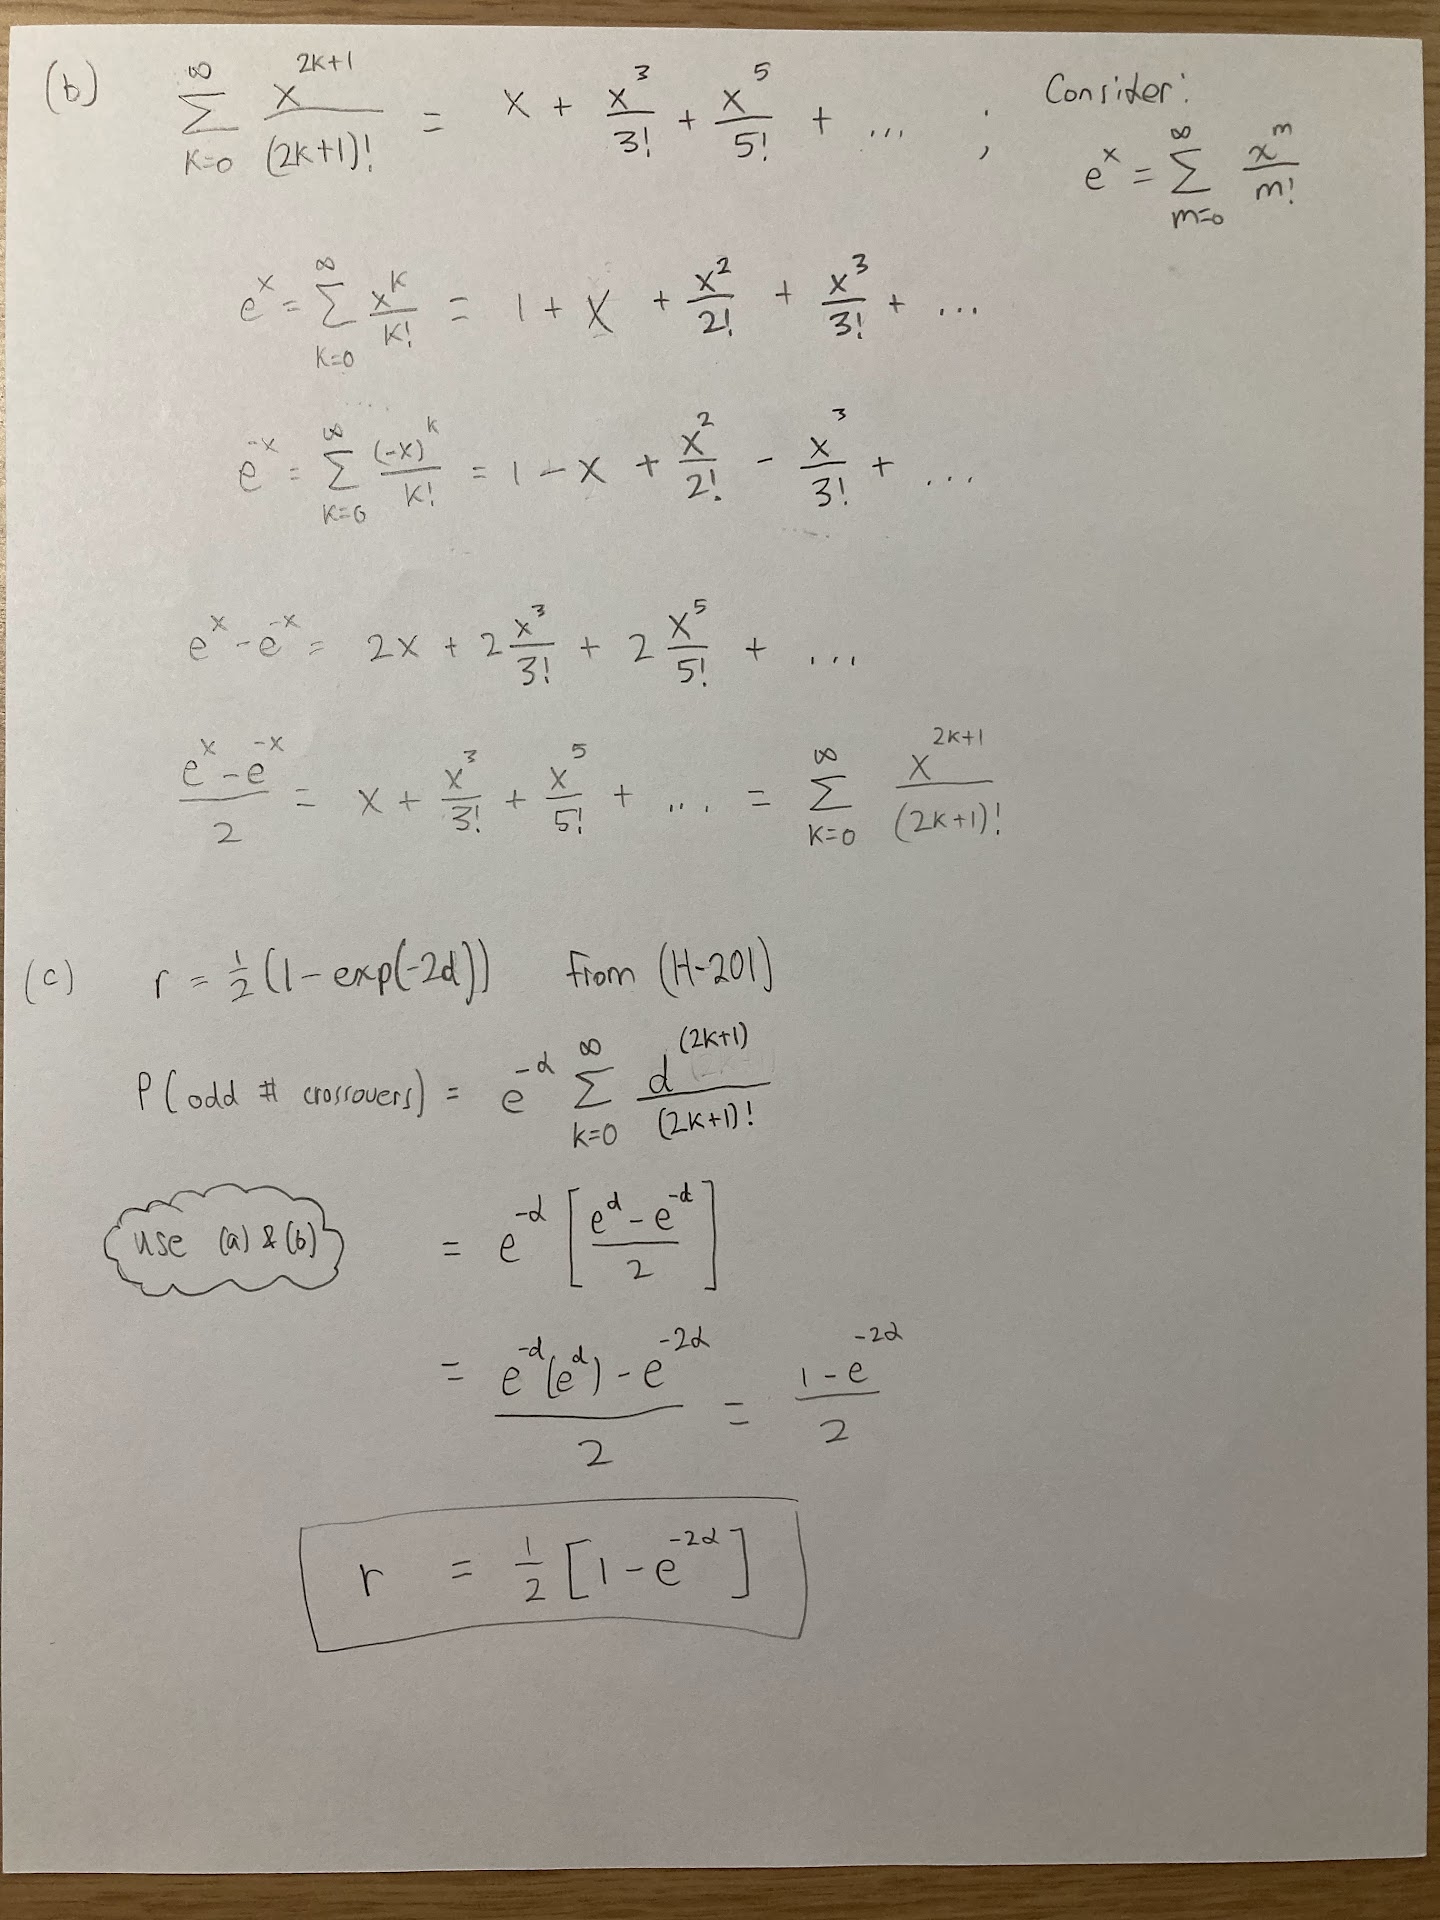 (b) $\sum_{k=0}^{\infty} \frac{x^{2k+1}}{(2k+1)!} = x + \frac{x^3}{3!} + \frac{x^5}{5!} + \ldots$ ; Consider:
$e^x = \sum_{m=0}^{\infty} \frac{x^m}{m!}$
$e^x = \sum_{k=0}^{\infty} \frac{x^k}{k!} = 1 + x + \frac{x^2}{2!} + \frac{x^3}{3!} + \ldots$
$e^{-x} = \sum_{k=0}^{\infty} \frac{(-x)^k}{k!} = 1 - x + \frac{x^2}{2!} - \frac{x^3}{3!} + \ldots$
$e^x - e^{-x} = 2x + 2\frac{x^3}{3!} + 2\frac{x^5}{5!} + \ldots$
$\frac{e^x - e^{-x}}{2} = x + \frac{x^3}{3!} + \frac{x^5}{5!} + \ldots = \sum_{k=0}^{\infty} \frac{x^{2k+1}}{(2k+1)!}$
(c) $r = \frac{1}{2}(1 - exp(-2d))$ from (H-201)
P(odd # crossovers) = $e^{-d} \sum_{k=0}^{\infty} \frac{d^{(2k+1)}}{(2k+1)!}$
use (a) & (b) $= e^{-d} \left[ \frac{e^d - e^{-d}}{2} \right]$
$= \frac{e^{-d}(e^d) - e^{-2d}}{2} = \frac{1 - e^{-2d}}{2}$
$r = \frac{1}{2} [1 - e^{-2d}]$